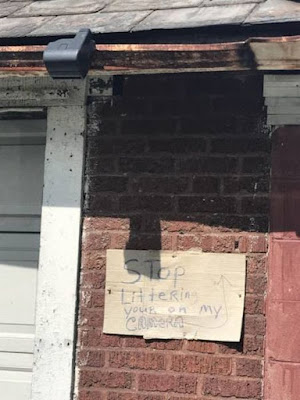 STOP
LitteRing
youR on my
CAMERA